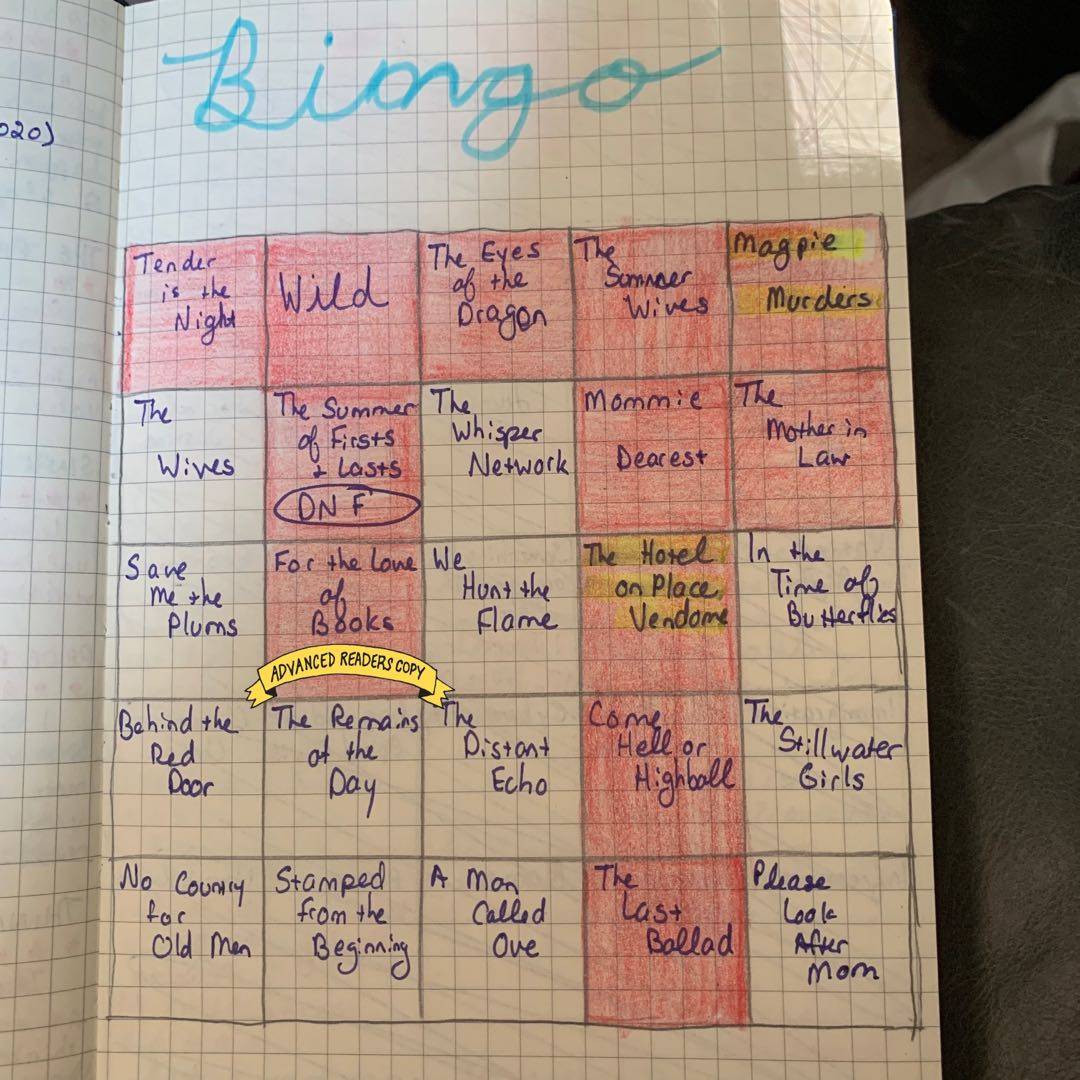 020)
Bingo
Tender
is the
Night
Wild
The Eyes
of the
Dragon
The
Summer
Wives
Magpie
Murders
The
Wives
The Summer
of Firsts
+ Lasts
DNF
The
Whisper
Network
Mommie
Dearest
The
Mother in
Law
Save
me the
Plums
For the Love
of
Books
ADVANCED READERS COPY
We
Hunt the
Flame
The Hotel
on Place
Vendome
In the
Time of
Butterflies
Behind the
Red
Door
The Remains
of the
Day
The
Distant
Echo
Come
Hell or
Highball
The
Stillwater
Girls
No Country
for
Old Men
Stamped
from the
Beginning
A Man
Called
Ove
The
Last
Ballad
Please
Look
After
Mom